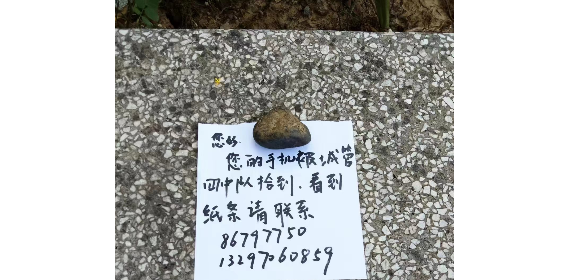 您好
您的手机被城管
四中队拾到.看到
纸条请联系
86797750
13297060859